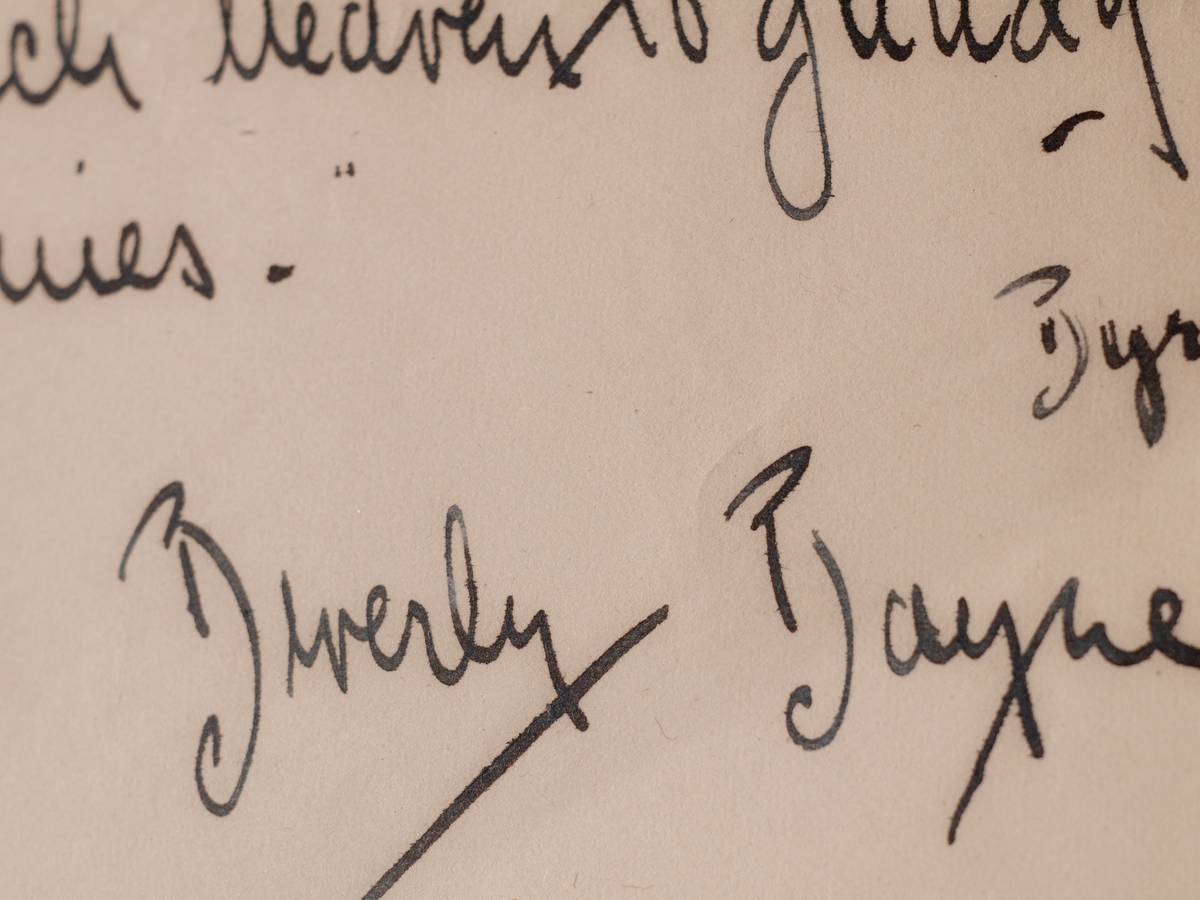 ch heaven to gaudy
nies."
Byr
Beverly Bayne